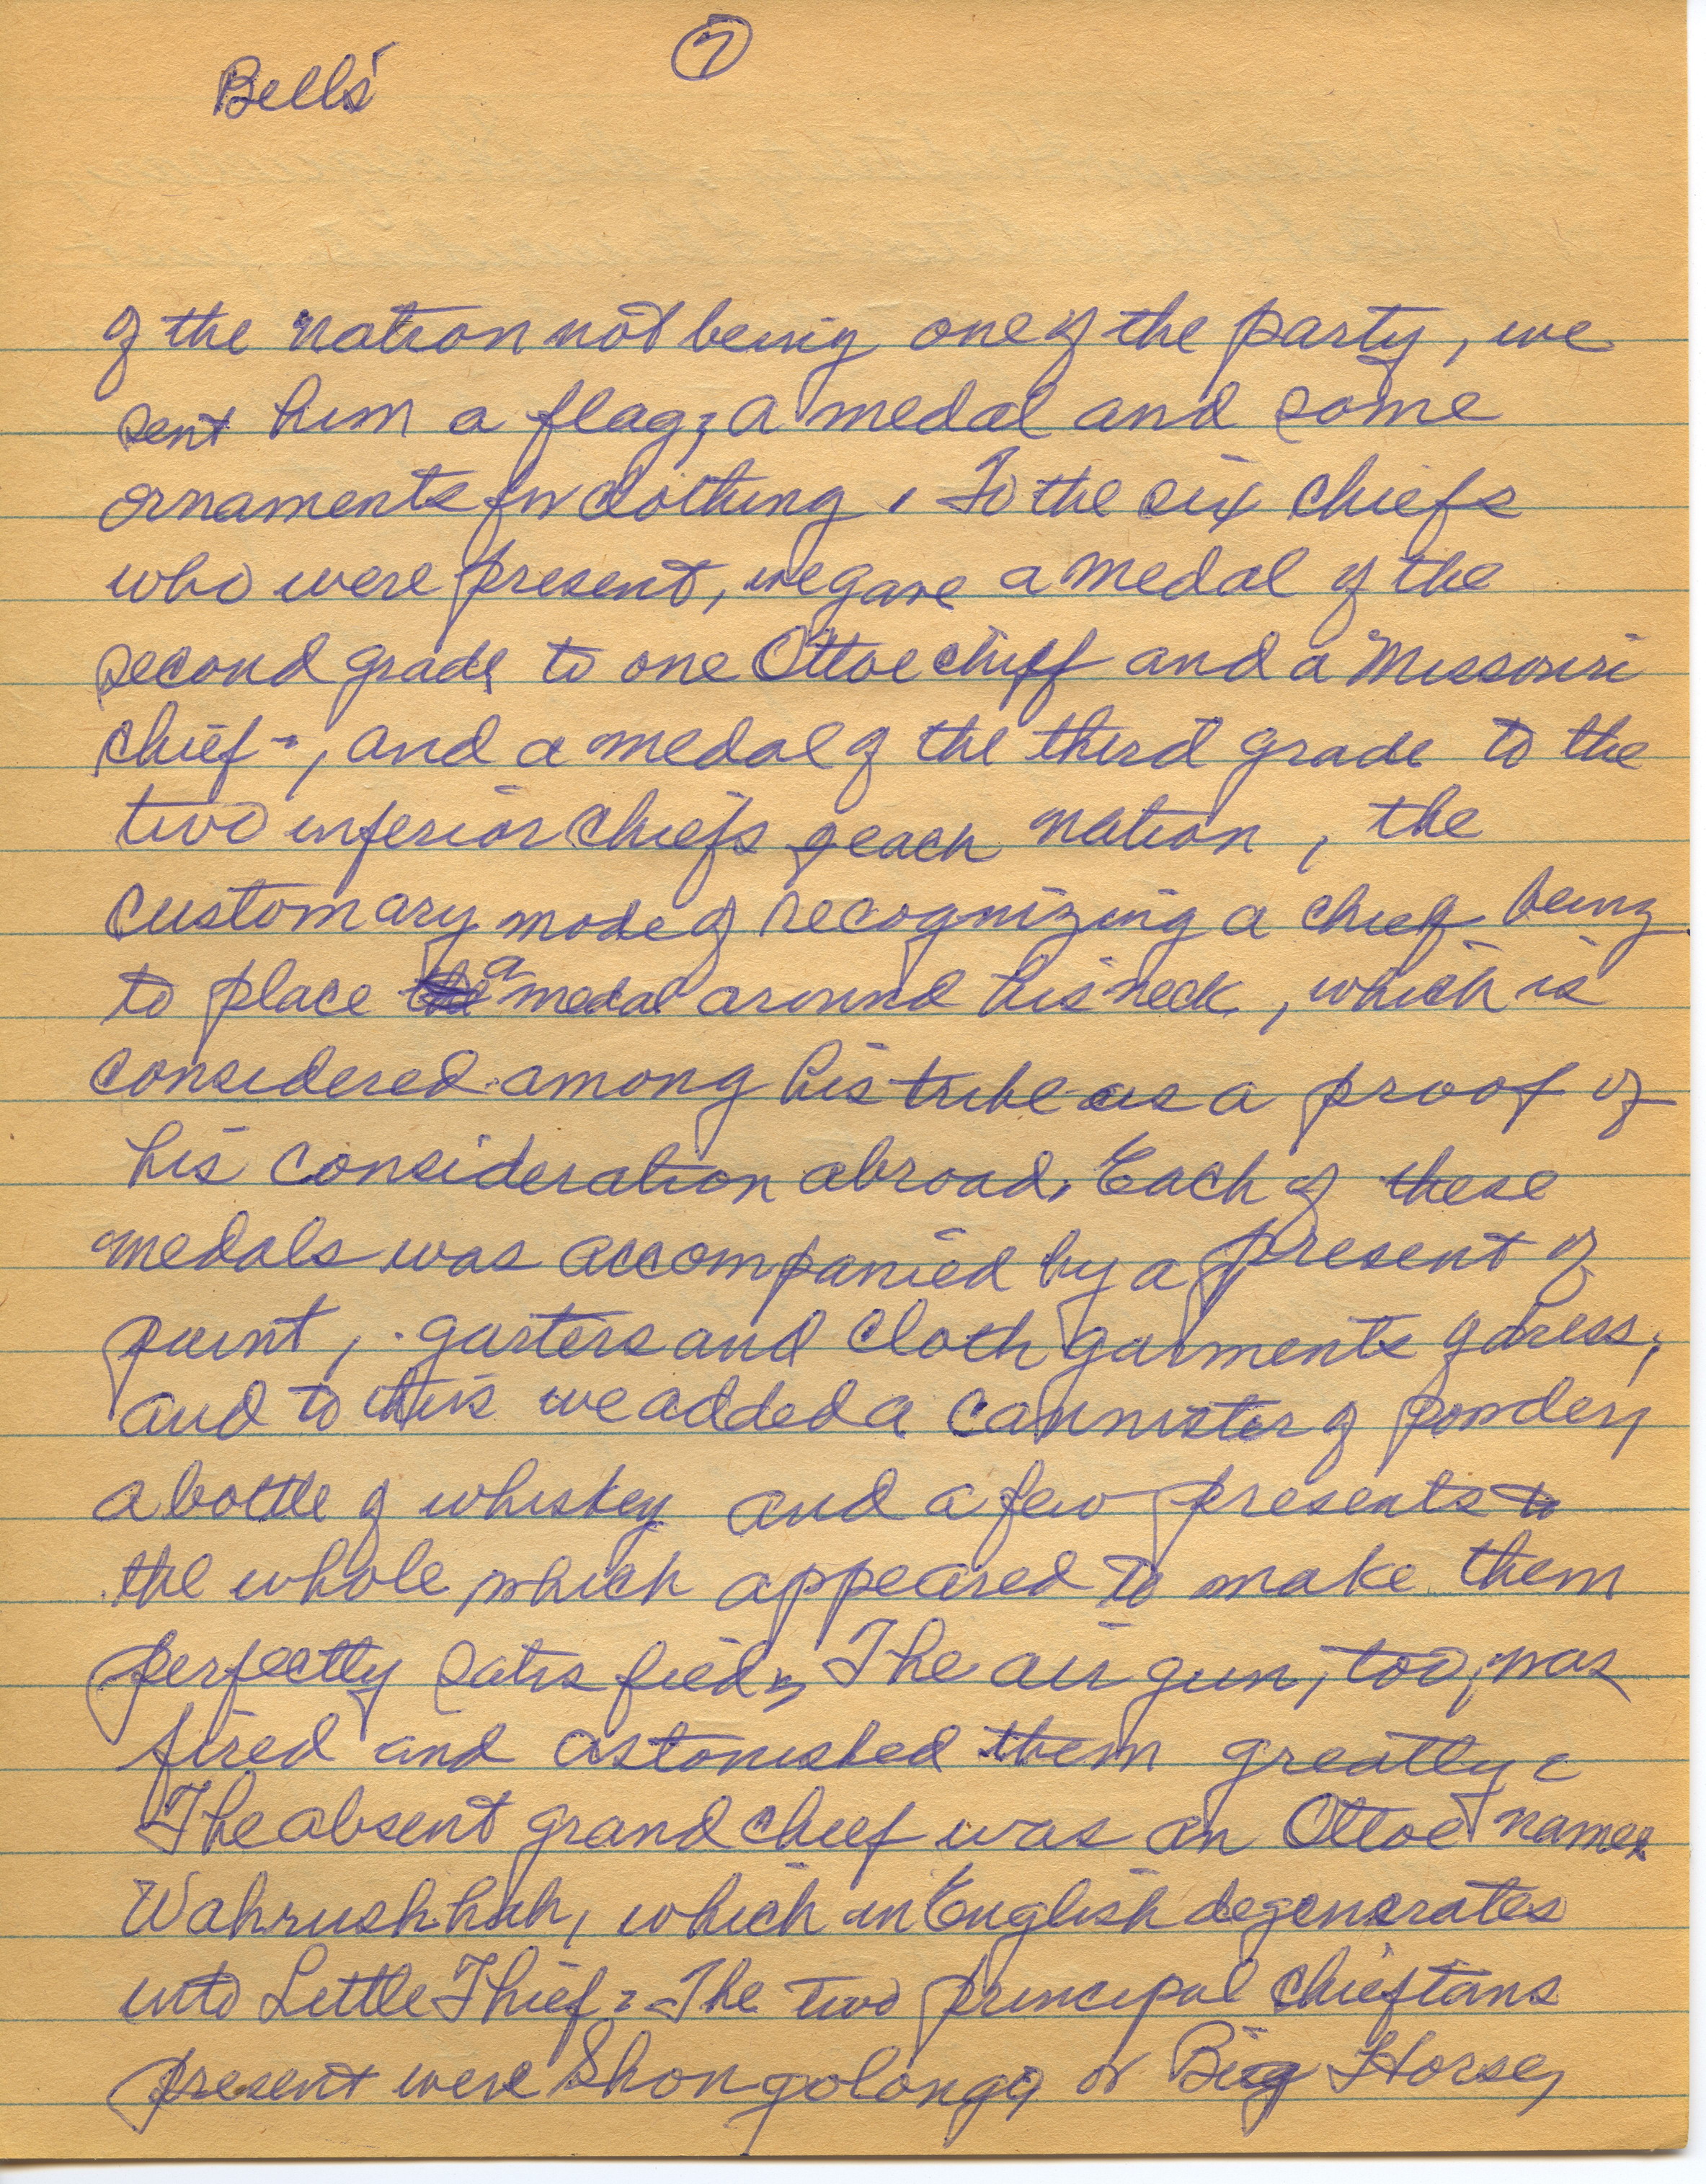 Bells'
7
of the nation not being one of the party, we
sent him a flag, a medal and some
ornaments for clothing. To the six chiefs
who were present, we gave a medal of the
second grade to one Ottoe chief and a Missouri
chief, and a medal of the third grade to the
two inferior chiefs of each nation, the
customary mode of recognizing a chief being
to place a medal around his neck, which is
considered among his tribe as a proof of
his consideration abroad. Each of these
medals was accompanied by a present of
paint, garters and cloth garments of dress,
and to this we added a cannister of powder,
a bottle of whiskey and a few presents to
the whole, which appeared to make them
perfectly satisfied. The air gun, too, was
fired and astonished them greatly.
The absent grand chief was an Ottoe named
Wahrushhah, which in English degenerates
into Little Thief. The two principal chieftans
present were Shongolongo or Big Horse,